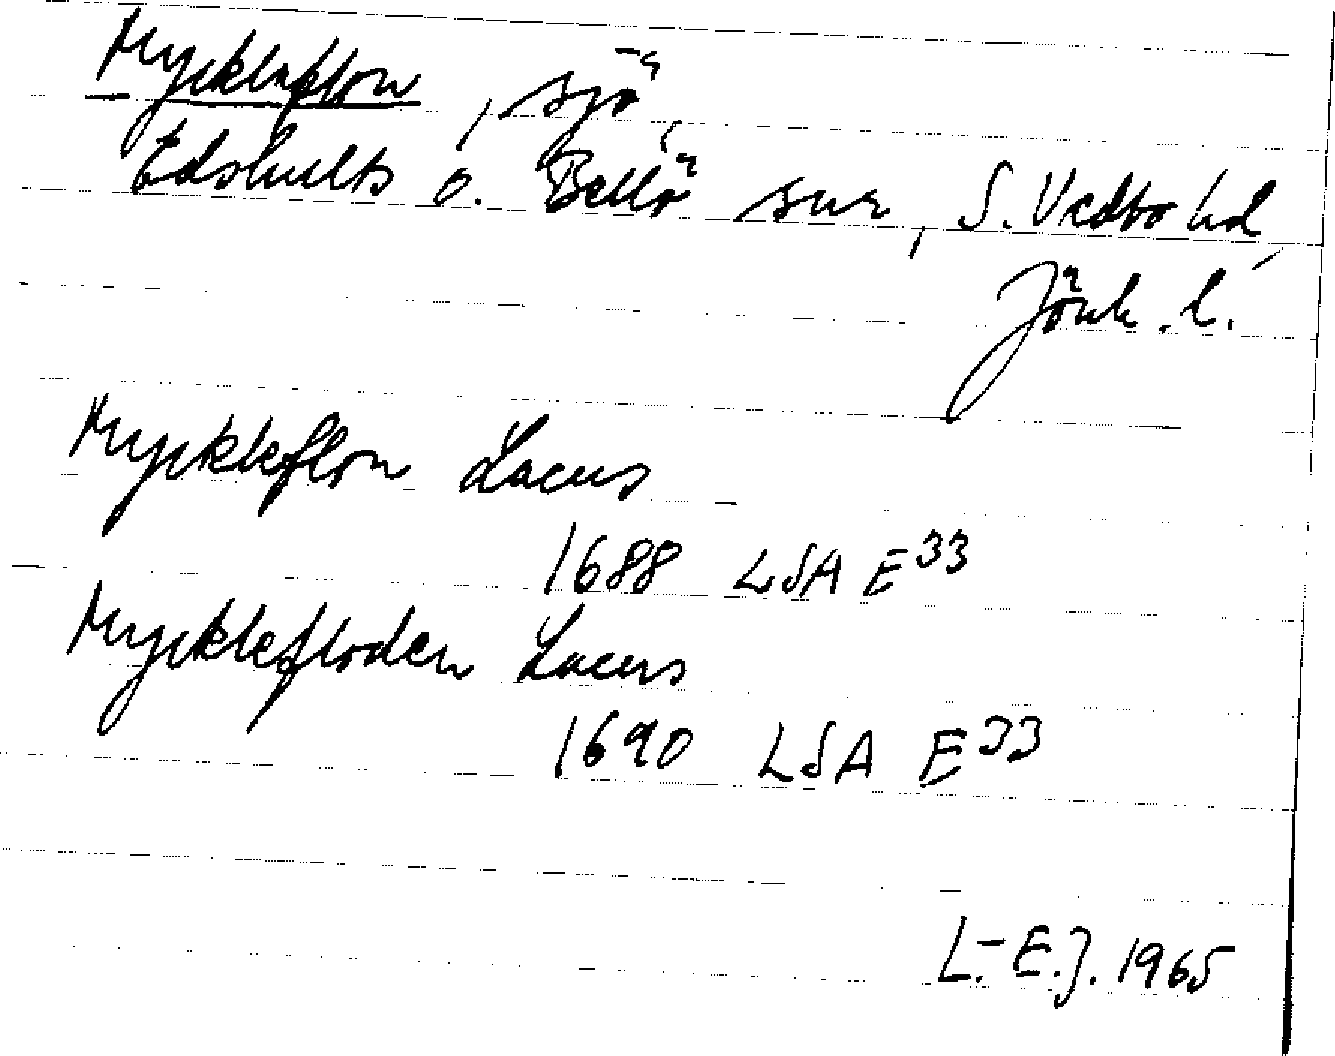 Mycklaflon, sjö,
Edshults o. Bellö snr, S. Vedbo hd,
Jönk. l.
Myckleflon Lacus
1688 LSA E33
Mycklefloden Lacus
1690 LSA E33
L.-E.J. 1965